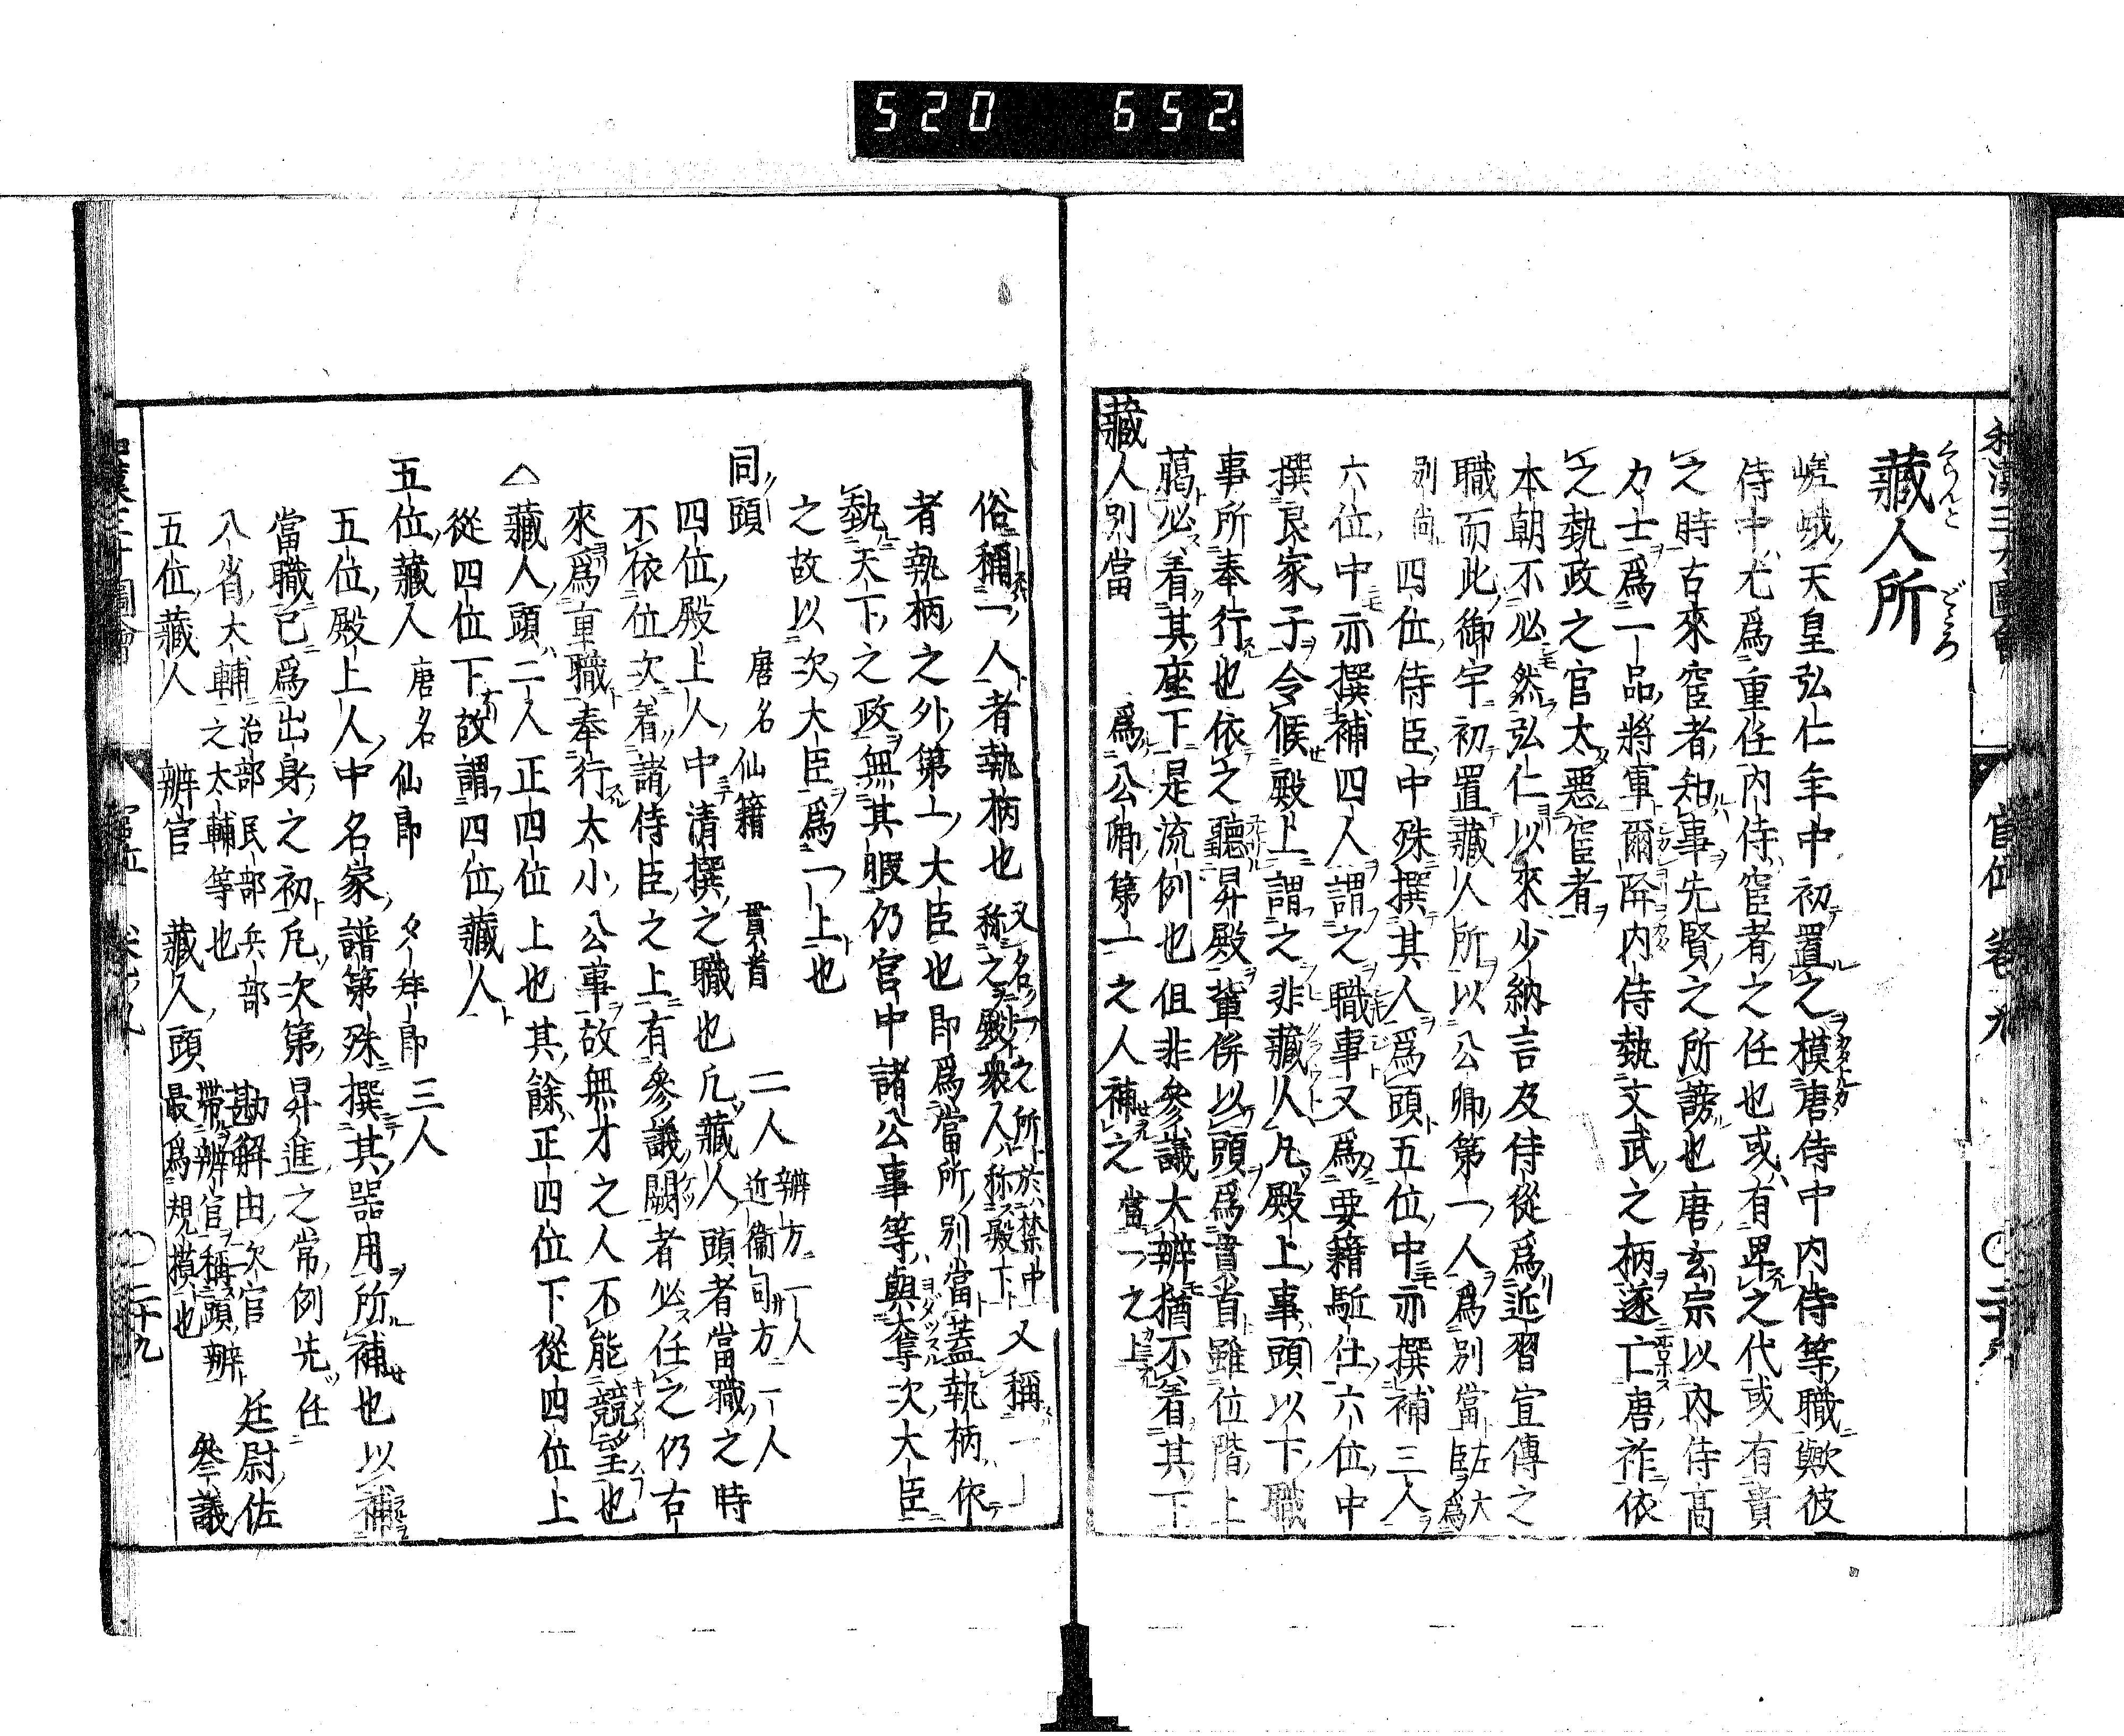 520 652
和漢三才圖會 官位 卷九 〇二十九
藏人所
くらんど どころ
嵯峨天皇弘仁年中初置之模唐侍中内侍等職歟彼
侍中尤爲重任内侍宦者之任也或有卑之代或有貴
之時古來宦者知事先賢之所謗也唐玄宗以内侍髙
力士爲一品將軍爾降内侍執文武之柄遂亡唐祚依
之執政之官太惡宦者
本朝不必然弘仁以來少納言及侍從爲近習宣傳之
職而此御宇初置藏人所以公卿第一人爲別當左大臣爲
別當 四位侍臣中殊撰其人爲頭五位中亦撰補三人
六位中亦撰補四人謂之職事又爲要籍駈仕六位中
撰良家子令候殿上謂之非藏人凡殿上事頭以下職
事所奉行也依之聽昇殿輩併以頭爲貫首雖位階上
﨟必着其座下是流例也但非參議大辨猶不着其下
藏人別當 爲公卿第一之人補之當一之上
俗稱一人者執柄也又名一之所於禁中稱之殿衆人称殿下又稱一
者執柄之外第一大臣也即爲當所別當蓋執柄依
執天下之政無其暇仍官中諸公事等與奪次大臣
之故以次大臣爲一上也
同頭 唐名 仙籍 貫首 二人 辨方一人 近衞司方一人
四位殿上人中清撰之職也凡藏人頭者當職之時
不依位次着諸侍臣之上有參議闕者必任之仍古
來爲重職奉行大小公事故無才之人不能競望也
△藏人頭二人正四位上也其餘正四位下從四位上
從四位下故謂四位藏人
五位藏人 唐名 仙郎 夕拜郎 三人
五位殿上人中名家譜第殊撰其器用所補也以補
當職已爲出身之初凡次第昇進之常例先任
八省大輔治部民部兵部之太輔等也 勘解由次官 廷尉佐
五位藏人 辨官 藏人頭帶辨官稱頭辨最爲規摸也 參議
和漢三才圖會 官位 卷九 〇二十九